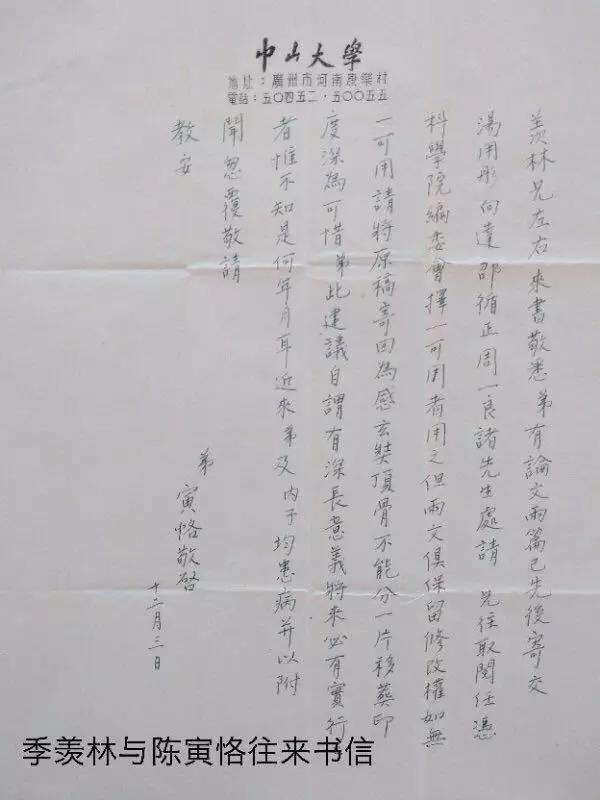 中山大學
地址：廣州市河南康樂村
電話：五〇四五二·五〇〇五五
羨林兄左右來書敬悉弟有論文兩篇已先後寄交
湯用彤向達邵循正周一良諸先生處請 兄往取閱任憑
科學院編委會擇一可用者用之但兩文俱保留修改權如無
一可用請將原稿寄回為感玄奘頂骨不能分一片移葬印
度深為可惜弟此建議自謂有深長意義將來必有實行
者惟不知是何年月耳近來弟及內子均患病并以附
聞忽覆敬請
教安
弟 寅恪敬啓
十二月三日
季羡林与陈寅恪往来书信